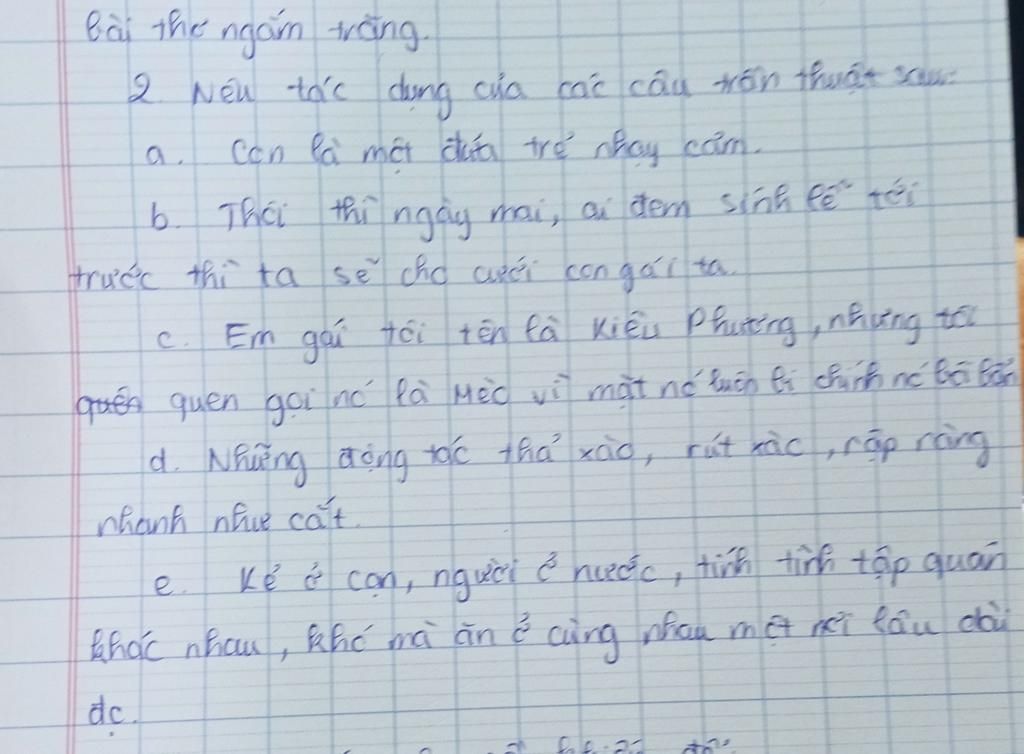 Bài thơ ngắm trăng.
2. Nêu tác dụng của các câu trần thuật sau:
a. Con là một đứa trẻ nhạy cảm.
b. Thôi thì ngày mai, ai đem sính lễ tới
trước thì ta sẽ cho cưới con gái ta.
c. Em gái tôi tên là Kiều Phương, nhưng tôi
quen gọi nó là Mèo vì mặt nó luôn bị chính nó bôi bẩn
d. Những động tác thả xào, rút xàc, rập ràng
nhanh như cắt.
e. Kẻ ở cạn, người ở nước, tính tình tập quán
khác nhau, khó mà ăn ở cùng nhau một nơi lâu dài
đc.